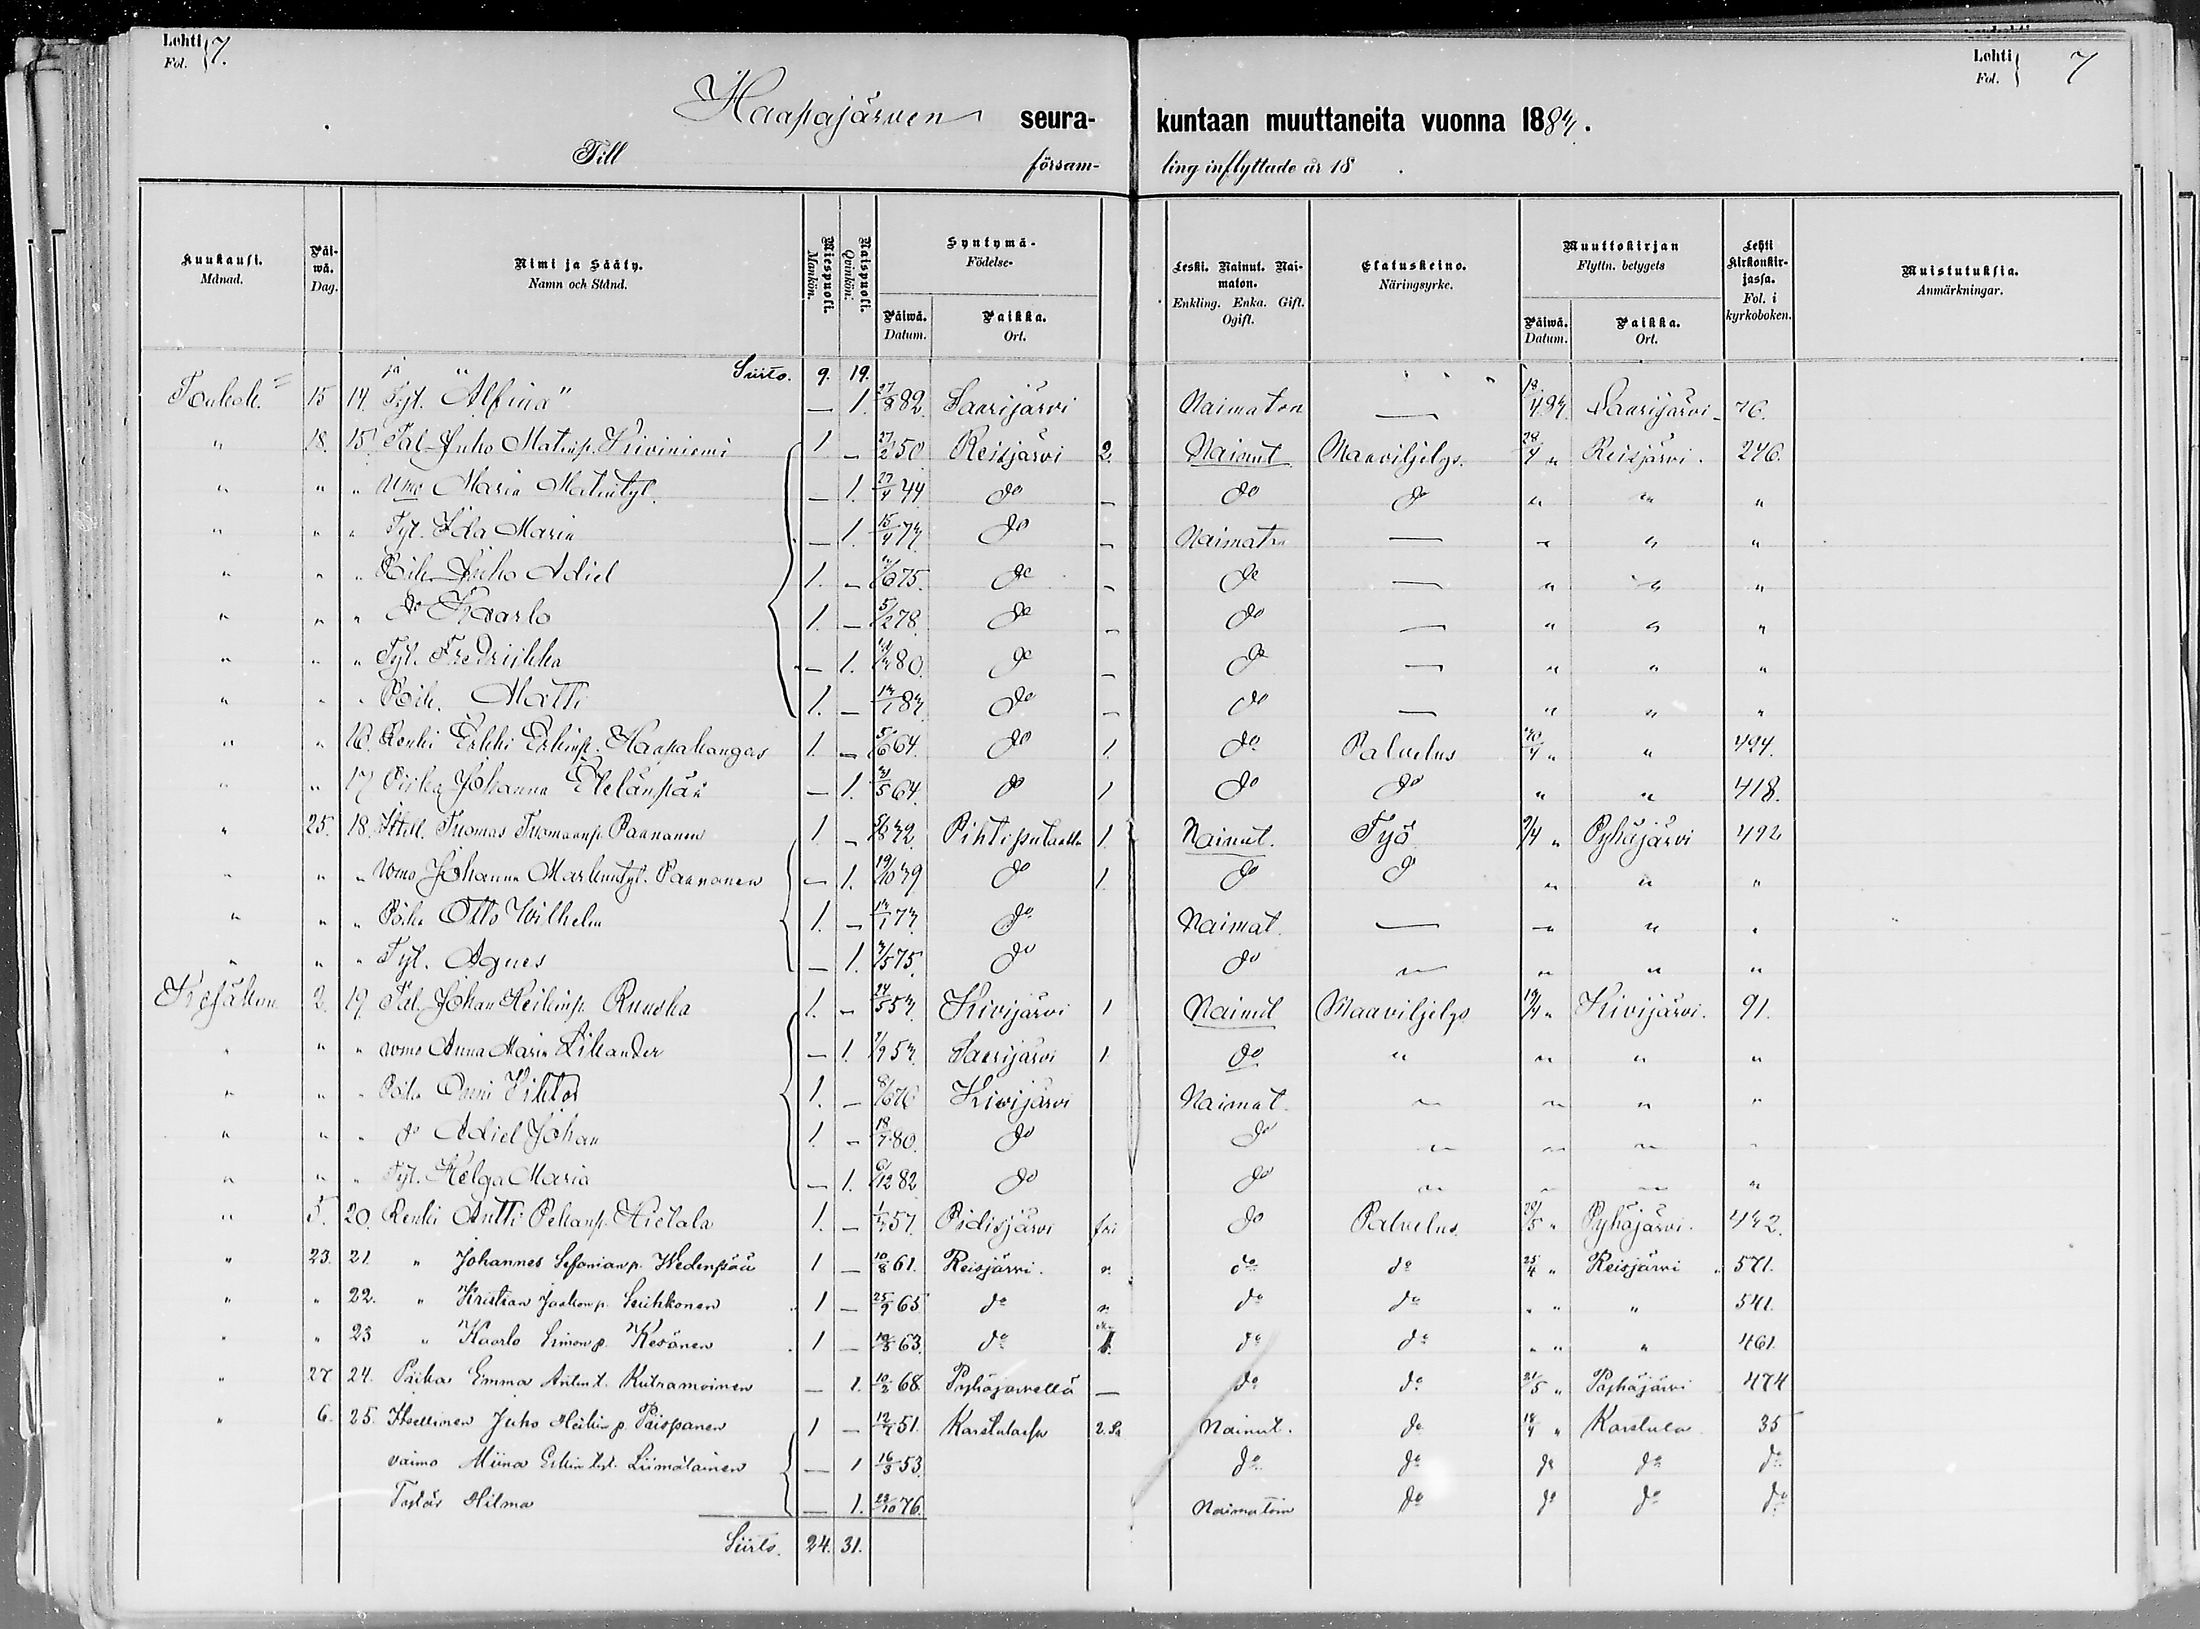 Lehti Fol. 7.
Lehti Fol. 7
Haapajärven seurakuntaan muuttaneita vuonna 1883.
Till församling inflyttade år 18 .
Kuukausi. Månad. Päiwä. Dag. Nimi ja Sääty. Namn och Stånd. Miespuoli. Mankön. Naispuoli. Qvinkön. Syntymä- Födelse- Päiwä. Datum. Paikka. Ort. Leski. Nainut. Naimaton. Enkling. Enka. Gift. Ogift. Elatuskeino. Näringsyrke. Muuttokirjan Flyttn. betygets Päiwä. Datum. Paikka. Ort. Lehti Kirkonkirjassa. Fol. i kyrkoboken. Muistutuksia. Anmärkningar.
Siirto. 9. 19.
Toukok. 15 14. Tyt. "Alfina" — 1. 27/8 82. Saarijärvi Naimaton — 18/4 83. Saarijärvi 76.
" 18. 15. Tal. Juho Matinp. Kiviniemi 1. — 27/2 50 Reisjärvi 2. Nainut Maaviljelys. 28/4 " Reisjärvi. 246.
" " " Wmo Maria Matintyt. — 1. 27/4 44 do — do do " " "
" " " Tyt. Ida Maria — 1. 15/4 73. do — Naimaton — " " "
" " " Poik. Juho Adiel 1. — 75. do — do — " " "
" " " do Kaarlo 1. — 5/2 78. do — do — " " "
" " " Tyt. Fredriikka — 1. 80. do — do — " " "
" " " Poik. Matti 1. — 13/1 83. do — do — " " "
" " 16. Renki Erkki Erkinp. Haapakangas 1. — 5/6 64. do 1. do Palvelus 30/4 " " 494.
" " 17 Piika Johanna Etelänpää — 1. 5 64. do 1 do do " " 418.
" 25. 18. Itsell. Tuomas Tuomaanp. Paananen 1 — 5/8 32. Pihtiputaalla 1. Nainut. Työ 9/4 " Pyhäjärvi 492
" " " Wmo Johanna Markuntyt. Paananen — 1. 19/10 39 do 1. do do " " "
" " " Poika Otto Wilhelm 1. — 13/1 73. do Naimat. — " " "
" " " Tyt. Agnes — 1. 5 75. do do " " " "
Kesäkuu 2. 19. Tal. Johan Heikinp. Ruuska 1. — 24/5 53. Kivijärvi 1 Nainut Maaviljelys 13/4 " Kivijärvi. 91.
" " " wmo Anna Maria Likander — 1. 9 53. Saarijärvi 1. do " " " "
" " " Poika Onni Viktor 1. — 8/6 76 Kivijärvi Naimat. " " " "
" " " do Adiel Johan 1. — 18/7 80. do do " " " "
" " " Tyt. Helga Maria — 1. 6/12 82 do do " " " "
" 5. 20. Renki Antti Pekanp. Hietala 1. — 57. Pidisjärvi fri do Palvelus. 5 " Pyhäjärvi. 432.
" 23. 21. " Johannes Sefanianp. Wedenpää 1 — 10/8 61. Reisjärvi. " do do 25/4 " Reisjärvi " 571.
" " 22. " Kristian Jaakonp. Leuhkonen 1 — 25/9 65 do " do do " " " 541.
" " 23 " Kaarlo Simonp. Kesänen 1 — 63. do 1. do do " " " 461.
" 27 24. Piika Emma Antint. Kutramoinen — 1. 10/2 68. Pyhäjärvellä — do do 21/5 " Pyhäjärvi 474
" 6. 25. Itsellinen Juho Heikinp. Piispanen 1 — 12/7 51. Karstulassa Nainut. do 18/4 " Karstula 35
vaimo Miina Erkin tyt. Liimatainen — 1 16/3 53. do do do do do
Tytär Hilma — 1. 23/10 76. Naimatoin do do do do
Siirto. 24. 31.